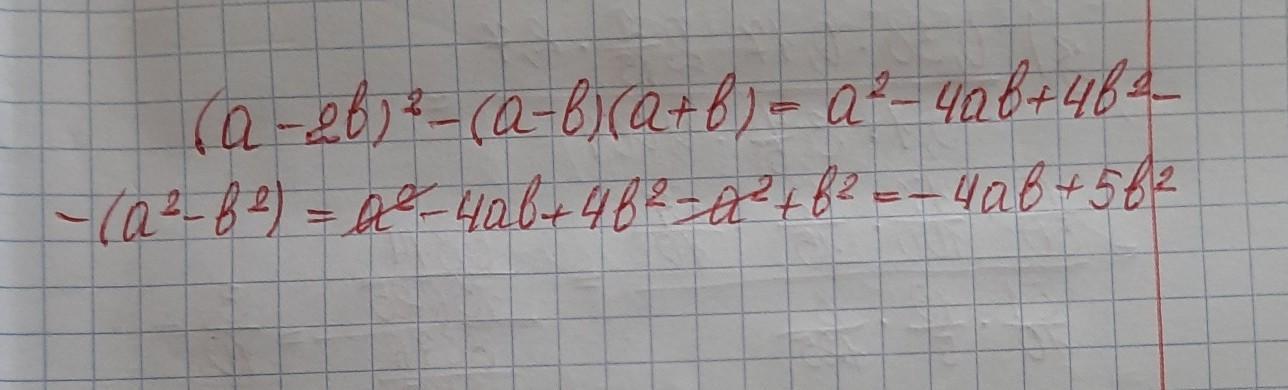 (a - 2b)² - (a-b)(a+b) = a² - 4ab + 4b² -
- (a² - b²) = a² - 4ab + 4b² - a² + b² = - 4ab + 5b²